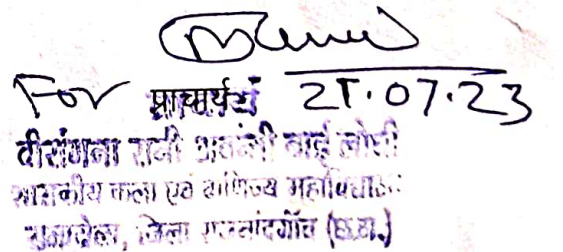 For प्राचार्य 21.07.23
वीरांगना रानी अवंती बाई लोधी
शासकीय कला एवं वाणिज्य महाविद्यालय
जिला राजनांदगाँव (छ.ग.)